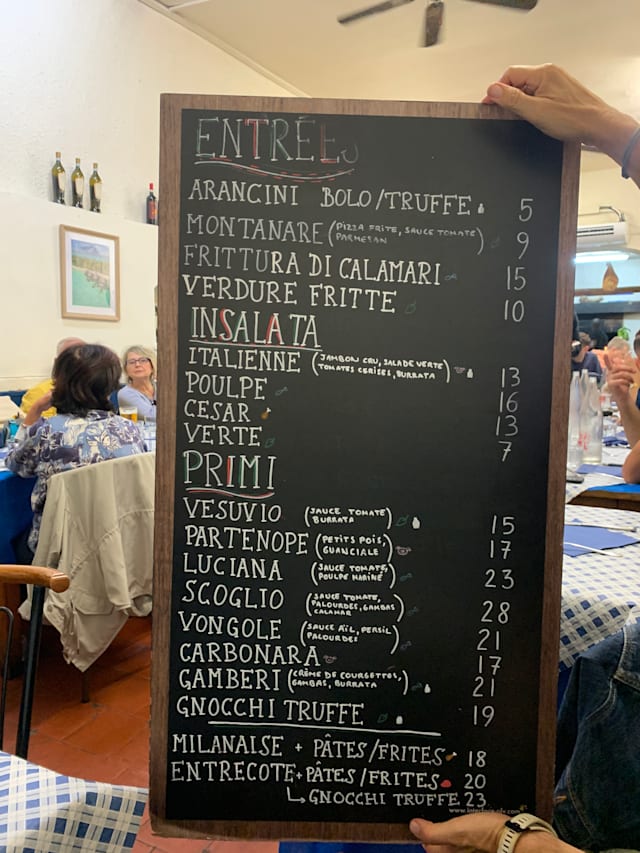 ENTRÉES
ARANCINI BOLO/TRUFFE 5
MONTANARE (PIZZA FRITE, SAUCE TOMATE, 9
PARMESAN)
FRITTURA DI CALAMARI 15
VERDURE FRITTE 10
INSALATA
ITALIENNE (JAMBON CRU, SALADE VERTE 13
TOMATES CERISES, BURRATA)
POULPE 16
CESAR 13
VERTE 7
PRIMI
VESUVIO (SAUCE TOMATE 15
BURRATA)
PARTENOPE (PETITS POIS, 17
GUANCIALE)
LUCIANA (SAUCE TOMATE, 23
POULPE MARINÉ)
SCOGLIO (SAUCE TOMATE, 28
PALOURDES, GAMBAS
CALAMAR)
VONGOLE (SAUCE AÏL, PERSIL 21
PALOURDES)
CARBONARA 17
GAMBERI (CRÈME DE COURGETTES, 21
GAMBAS, BURRATA)
GNOCCHI TRUFFE 19
MILANAISE + PÂTES/FRITES 18
ENTRECOTE + PÂTES/FRITES 20
GNOCCHI TRUFFE 23